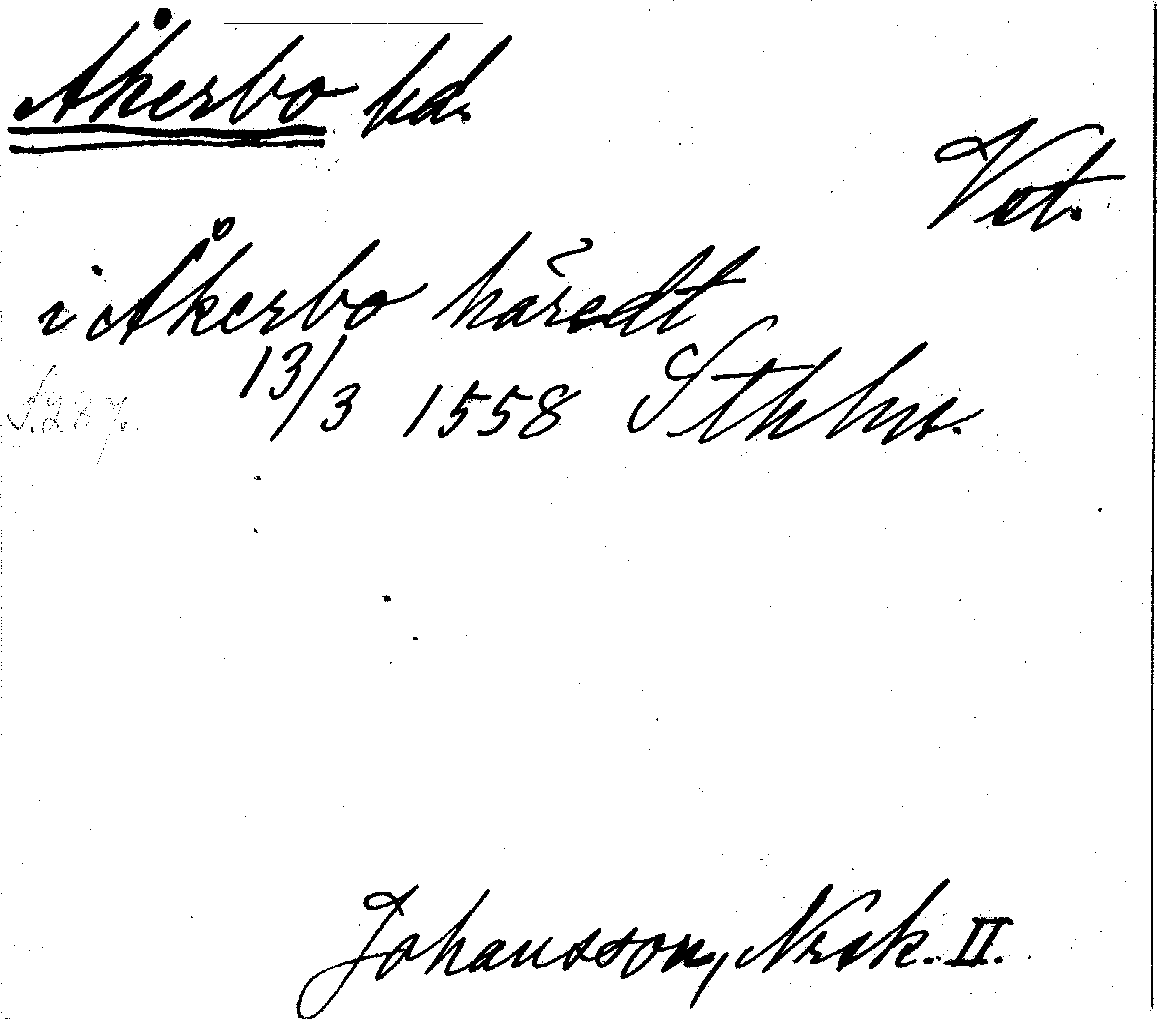 Åkerbo hd.
Vst.
i Åkerbo häredt
13/3 1558 Sthlm.
S. 287.
Johansson, Nrsk. II.